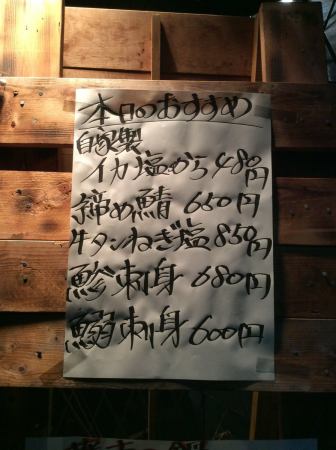 本日のおすすめ
自家製
イカ塩から 480円
締め鯖 660円
牛タンねぎ塩 850円
鯵刺身 680円
鰯刺身 600円